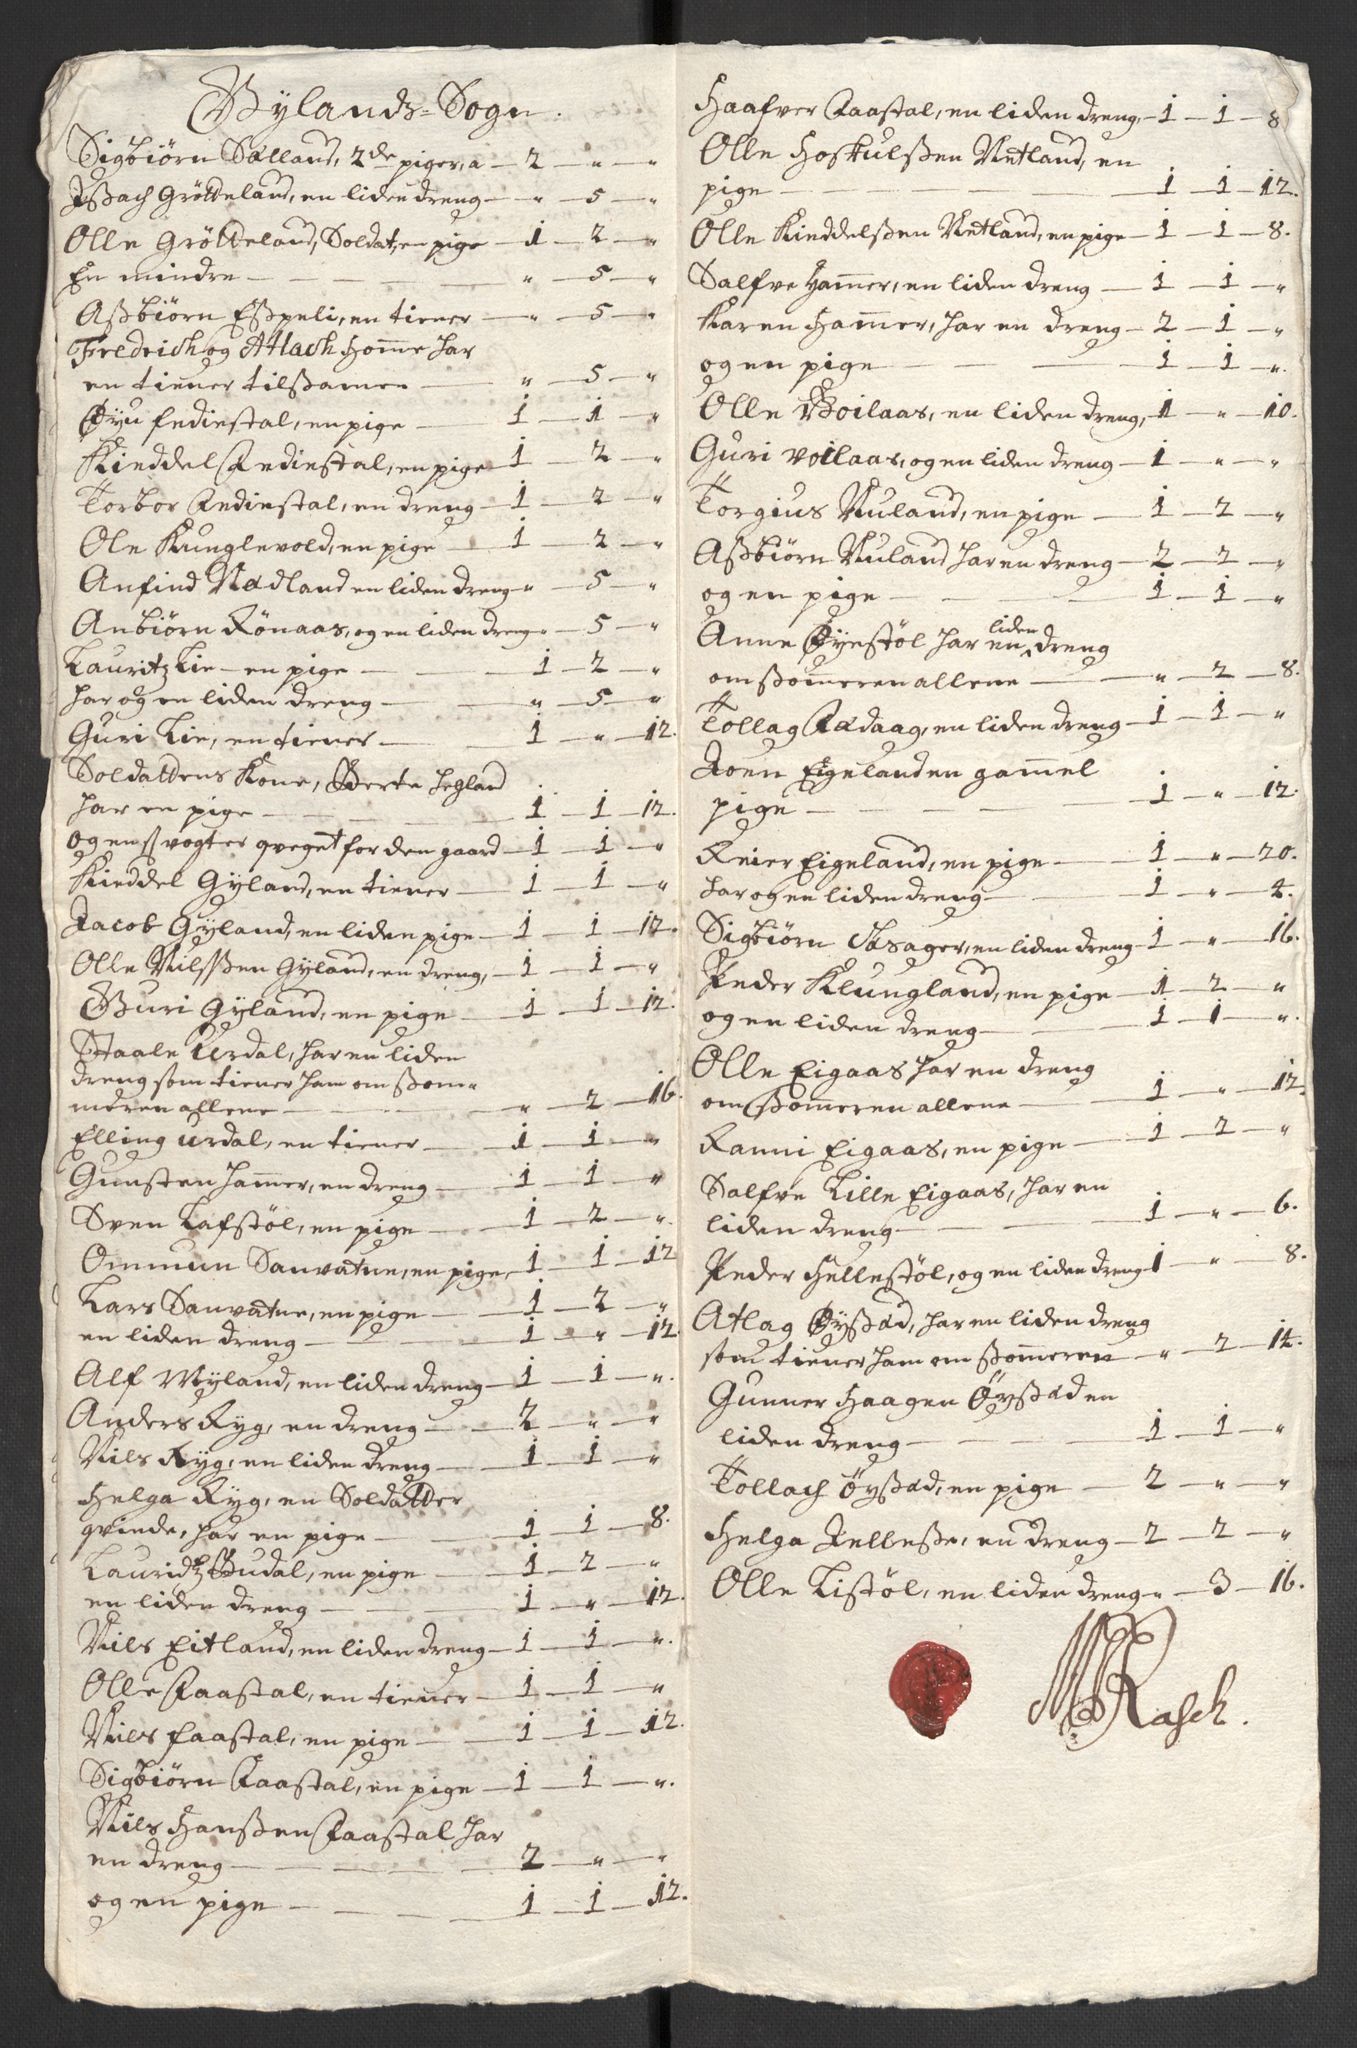 Gylands-Sogn.
Sigbiørn Sælland, 2de piger, a — 2 — " — "
Ißach Grøtteland, en liden dreng — " — 5 — "
Olle Grøtteland, Soldat, en pige — 1 — 2 — "
En mindre — " — 5 — "
Aßbiørn Eßpeli, en tiener — " — 5 — "
Fredrich og Atlach Homme har
en tiener tilßamen — " — 5 — "
Øyu fediestal, en pige — 1 — 1 — "
Kieddel Fediestal, en pige 1 — 2 — "
Torbor Fediestal, en dreng — 1 — 2 — "
Ole Kunglevold, en pige — 1 — 2 — "
Anfind Nædland en liden dreng " — 5 — "
Anbiørn Rønaas, og en liden dreng " — 5 — "
Lauritz Lie — en pige — 1 — 2 — "
har og en liden dreng — " — 5 — "
Guri Lie, en tiener — 1 — " — 12.
Soldattens Kone, Berte Hegland
har en pige — 1 — 1 — 12.
og en s vogter qveget for den gaard — 1 — 1 — "
Kieddel Gyland, en tiener — 1 — 1 — "
Jacob Gyland, en liden pige — 1 — 1 — 12.
Olle Nilsßen Gyland, en dreng, — 1 — 1 — "
Guri Gyland, en pige — 1 — 1 — 12.
Staale Urdal, har en liden
dreng som tiener ham om ßom-
meren allene — " — 2 — 16.
Elling Urdal, en tiener — 1 — 1 — "
Gunsten Hammer, en dreng — 1 — 1 — "
Sven Lafstøl, en pige — 1 — 2 — "
Ommun Sanvatne, en pige, 1 — 1 — 12
Lars Sanvatne, en pige — 1 — 2 — "
en liden dreng — 1 — " — 12.
Alf Myland, en liden dreng — 1 — 1 — "
Anders Ryg, en dreng — 2 — " — "
Nils Ryg, en liden dreng — 1 — 1 — "
Helga Ryg, en Soldatter
qvinde, har en pige — 1 — 1 — 8.
Lauridtz Budal, en pige — 1 — 2 — "
en liden dreng — 1 — " — 12.
Nils Eitland, en liden dreng — 1 — 1 — "
Olle Faastal, en tiener — 1 — 1 — "
Nils faastal, en pige — 1 — 1 — 12.
Sigbiørn Faastal, en pige — 1 — 1 — "
Nils Hanßen Faastal har
en dreng — 2 — " — "
og en pige — 1 — 1 — 12.
Haafver Faastal, en liden dreng, — 1 — 1 — 8
Olle Hoskulßen Netland, en
pige — 1 — 1 — 12.
Olle Kieddelßen Netland, en pige — 1 — 1 — 8.
Salfve Hammer, en liden dreng — 1 — 1 — "
Karen Hammer, har en dreng — 2 — 1 — "
og en pige — 1 — 1 — "
Olle Woilaas, en liden dreng, 1 — " — 10.
Guri Voilaas, og en liden dreng — 1 — " — "
Torgius Nuland, en pige — 1 — 2 — "
Aßbiørn Nuland har en dreng — 2 — 2 — "
og en pige — 1 — 1 — "
Anne Øyestøl har en liden dreng
om ßommeren allene — " — 2 — 8.
Tollag Fædaag, en liden dreng — 1 — 1 — "
Joen Eigeland en gammel
pige — 1 — " — 12.
Reier Eigeland, en pige — 1 — " — 20.
har og en liden dreng — 1 — " — 4.
Sigbiørn Aasager, en liden dreng — 1 — " — 16.
Peder Klungland, en pige — 1 — 2 — "
og en liden dreng — 1 — 1 — "
Olle Eigaas har en dreng
om ßommeren allene — 1 — " — 12.
Ranni Eigaas, en pige — 1 — 2 — "
Salfve Lille Eigaas, har en
liden dreng — 1 — " — 6.
Peder Hellestøl, og en liden dreng 1 — " — 8.
Atlag Øysæd, har en liden dreng
som tiener ham om ßommeren — " — 2 — 14.
Gunner Haagen Øysæd en
liden dreng — 1 — 1 — "
Tollach Øysæd, en pige — 2 — " — "
Helga Jelleße, en dreng — 2 — 2 — "
Olle Listøl, en liden dreng " — 3 — 16.
Rasch.